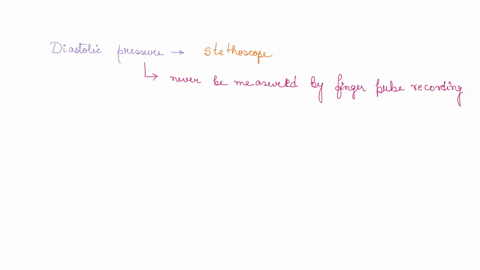 Diastolic pressure → stethoscope
↳ never be measured by finger pulse recording.